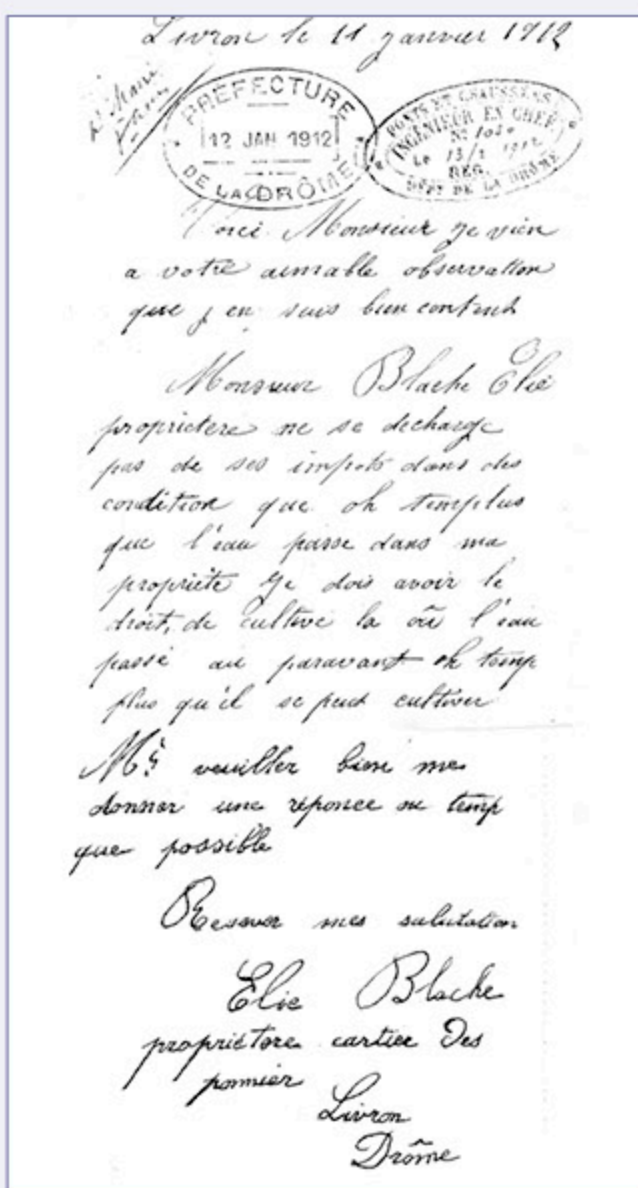 Livron le 11 janvier 1912
PREFECTURE
12 JAN 1912
DE LA DRÔME
PONTS ET CHAUSSÉES
INGÉNIEUR EN CHEF
No 1030
Le 13/1 1912
REG.
DÉPT DE LA DRÔME
Voici Monsieur je vien
a votre aimable observation
que j en suis bien contend
Monsieur Blache Elie
proprietere ne se decharge
pas de ses impots dans des
condition que oh temp lus
que l'eau passe dans ma
propriète je dois avoir le
droit, de cultive la oû l'eau
passé au paravant oh temp
plus qu'il se peut cultiver
Mr veuiller bien me
donner une réponce au temp
que possible
Resever mes salutation
Elie Blache
propriètere cartier Des
pomier
Livron
Drôme